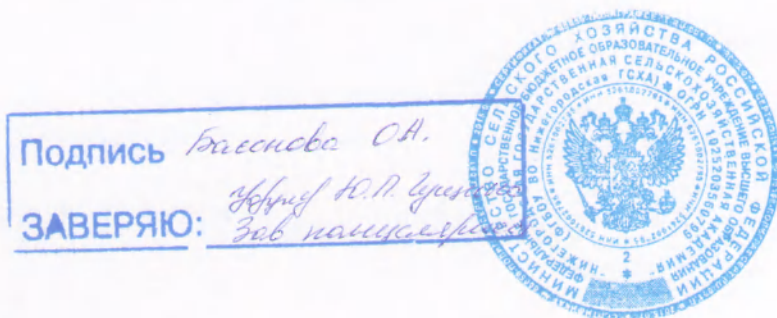 Подпись Басонова О.А.
ЗАВЕРЯЮ:
Ю.П.
Зав канцелярией
МИНИСТЕРСТВО СЕЛЬСКОГО ХОЗЯЙСТВА РОССИЙСКОЙ ФЕДЕРАЦИИ
ФЕДЕРАЛЬНОЕ ГОСУДАРСТВЕННОЕ БЮДЖЕТНОЕ ОБРАЗОВАТЕЛЬНОЕ УЧРЕЖДЕНИЕ ВЫСШЕГО ОБРАЗОВАНИЯ
"НИЖЕГОРОДСКАЯ ГОСУДАРСТВЕННАЯ СЕЛЬСКОХОЗЯЙСТВЕННАЯ АКАДЕМИЯ"
(ФГБОУ ВО Нижегородская ГСХА) * ОГРН 1025203560799
2